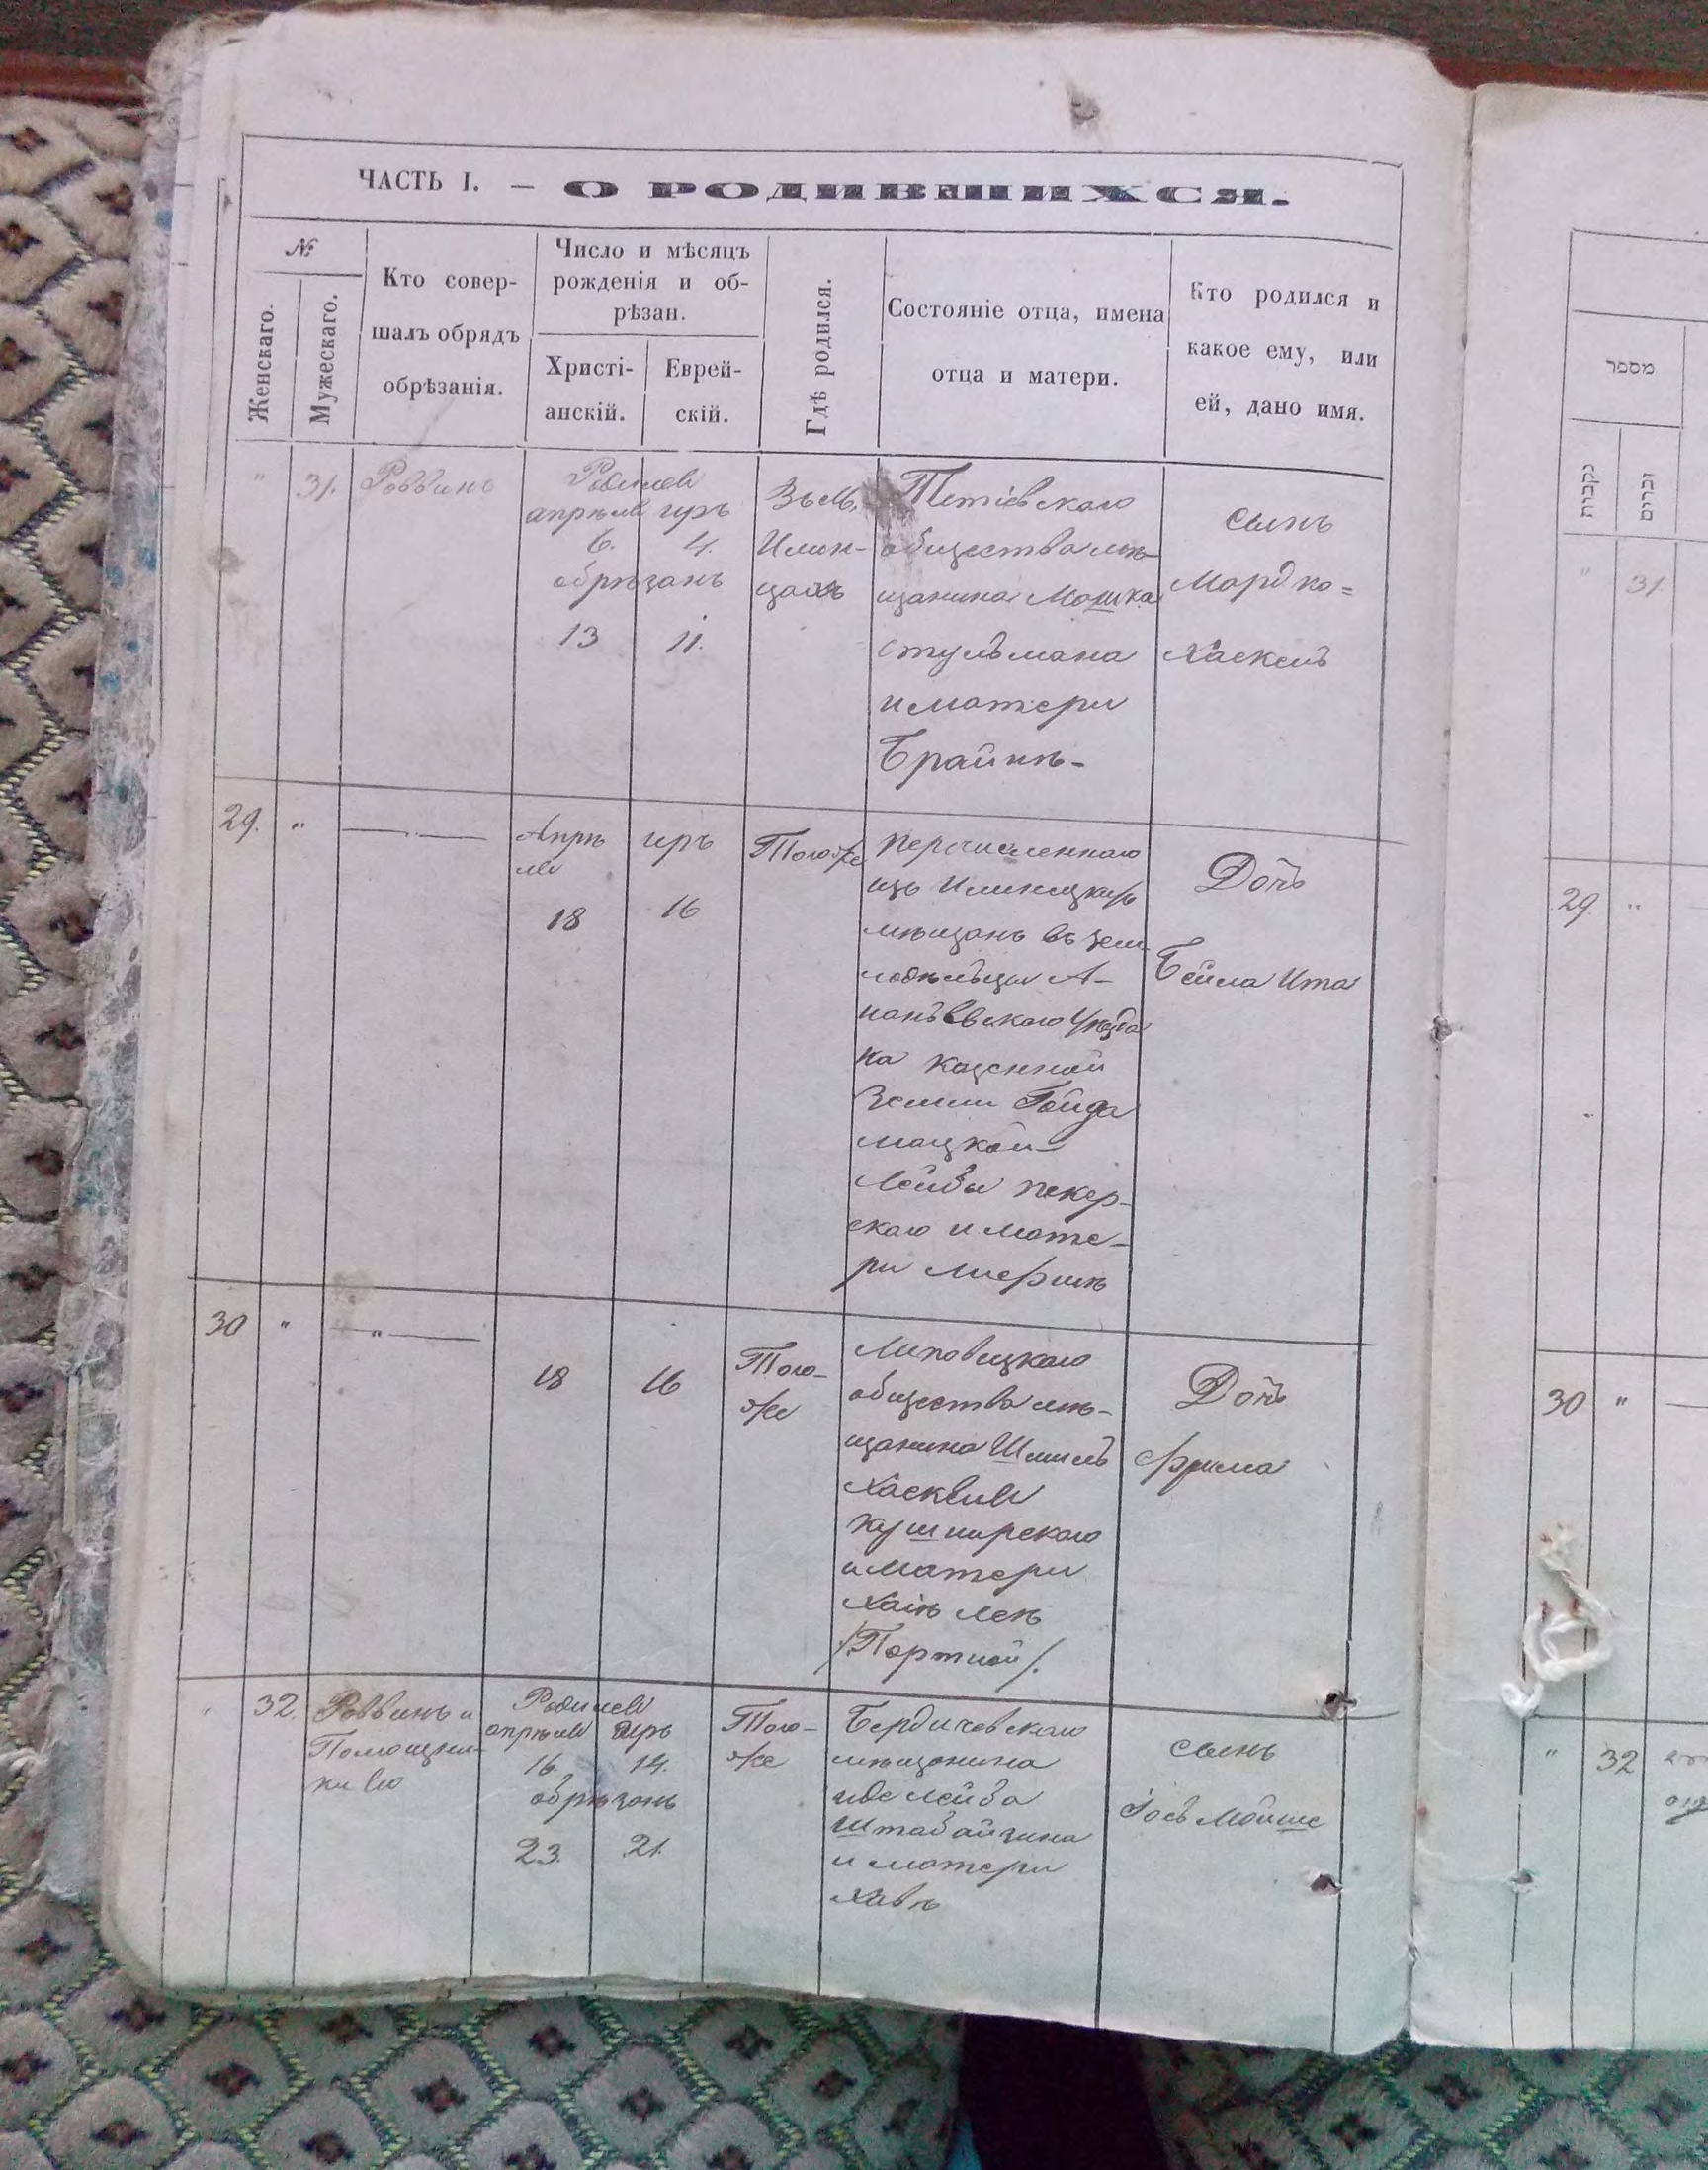 ЧАСТЬ I. — О РОДИВШИХСЯ.
№
Женскаго.
Мужескаго.
Кто совер-
шалъ обрядъ
обрѣзанія.
Число и мѣсяцъ
рожденія и об-
рѣзан.
Христі-
анскій.
Еврей-
скій.
Гдѣ родился.
Состояніе отца, имена
отца и матери.
Кто родился и
какое ему, или
ей, дано имя.
" 31. Раввинъ
Родился
апрѣля иръ
6. 4.
обрѣзанъ
13 11.
Въ М.
Илин-
цахъ
Тетіевскаго
общества мѣ-
щанина Мошка
Стульмана
и матери
Брайнѣ-
сынъ
Мордко=
Хаскель
29. " —
Апрѣ
ля
иръ
18 16
Того же
перечисленнаго
изъ Илинецкихъ
мѣщанъ въ зем
ледѣльцы А-
наньевскаго Уѣзда
на казенной
Земли Гайда
мацкой
Лейбы Пекер-
скаго и мате-
ри
Дочь
Бейла Ита
30 " — " —
18 16
Того-
же
Липовецкаго
общества мѣ-
щанина Шмиль
Хаскеля
Кушнирскаго
и матери
Хаіѣ Леѣ
/Портной/.
Дочь
Фрима
" 32. Раввинъ и
Помощни-
ки его
Родился
апрѣля иръ
16. 14.
обрѣзанъ
23. 21.
Того-
же
Бердичевскаго
мѣщанина
Иде Лейба
и матери
Хавѣ
сынъ
Іось Мойше
מספר
נקבות
זכרים
" 31
29 "
30 "
" 32